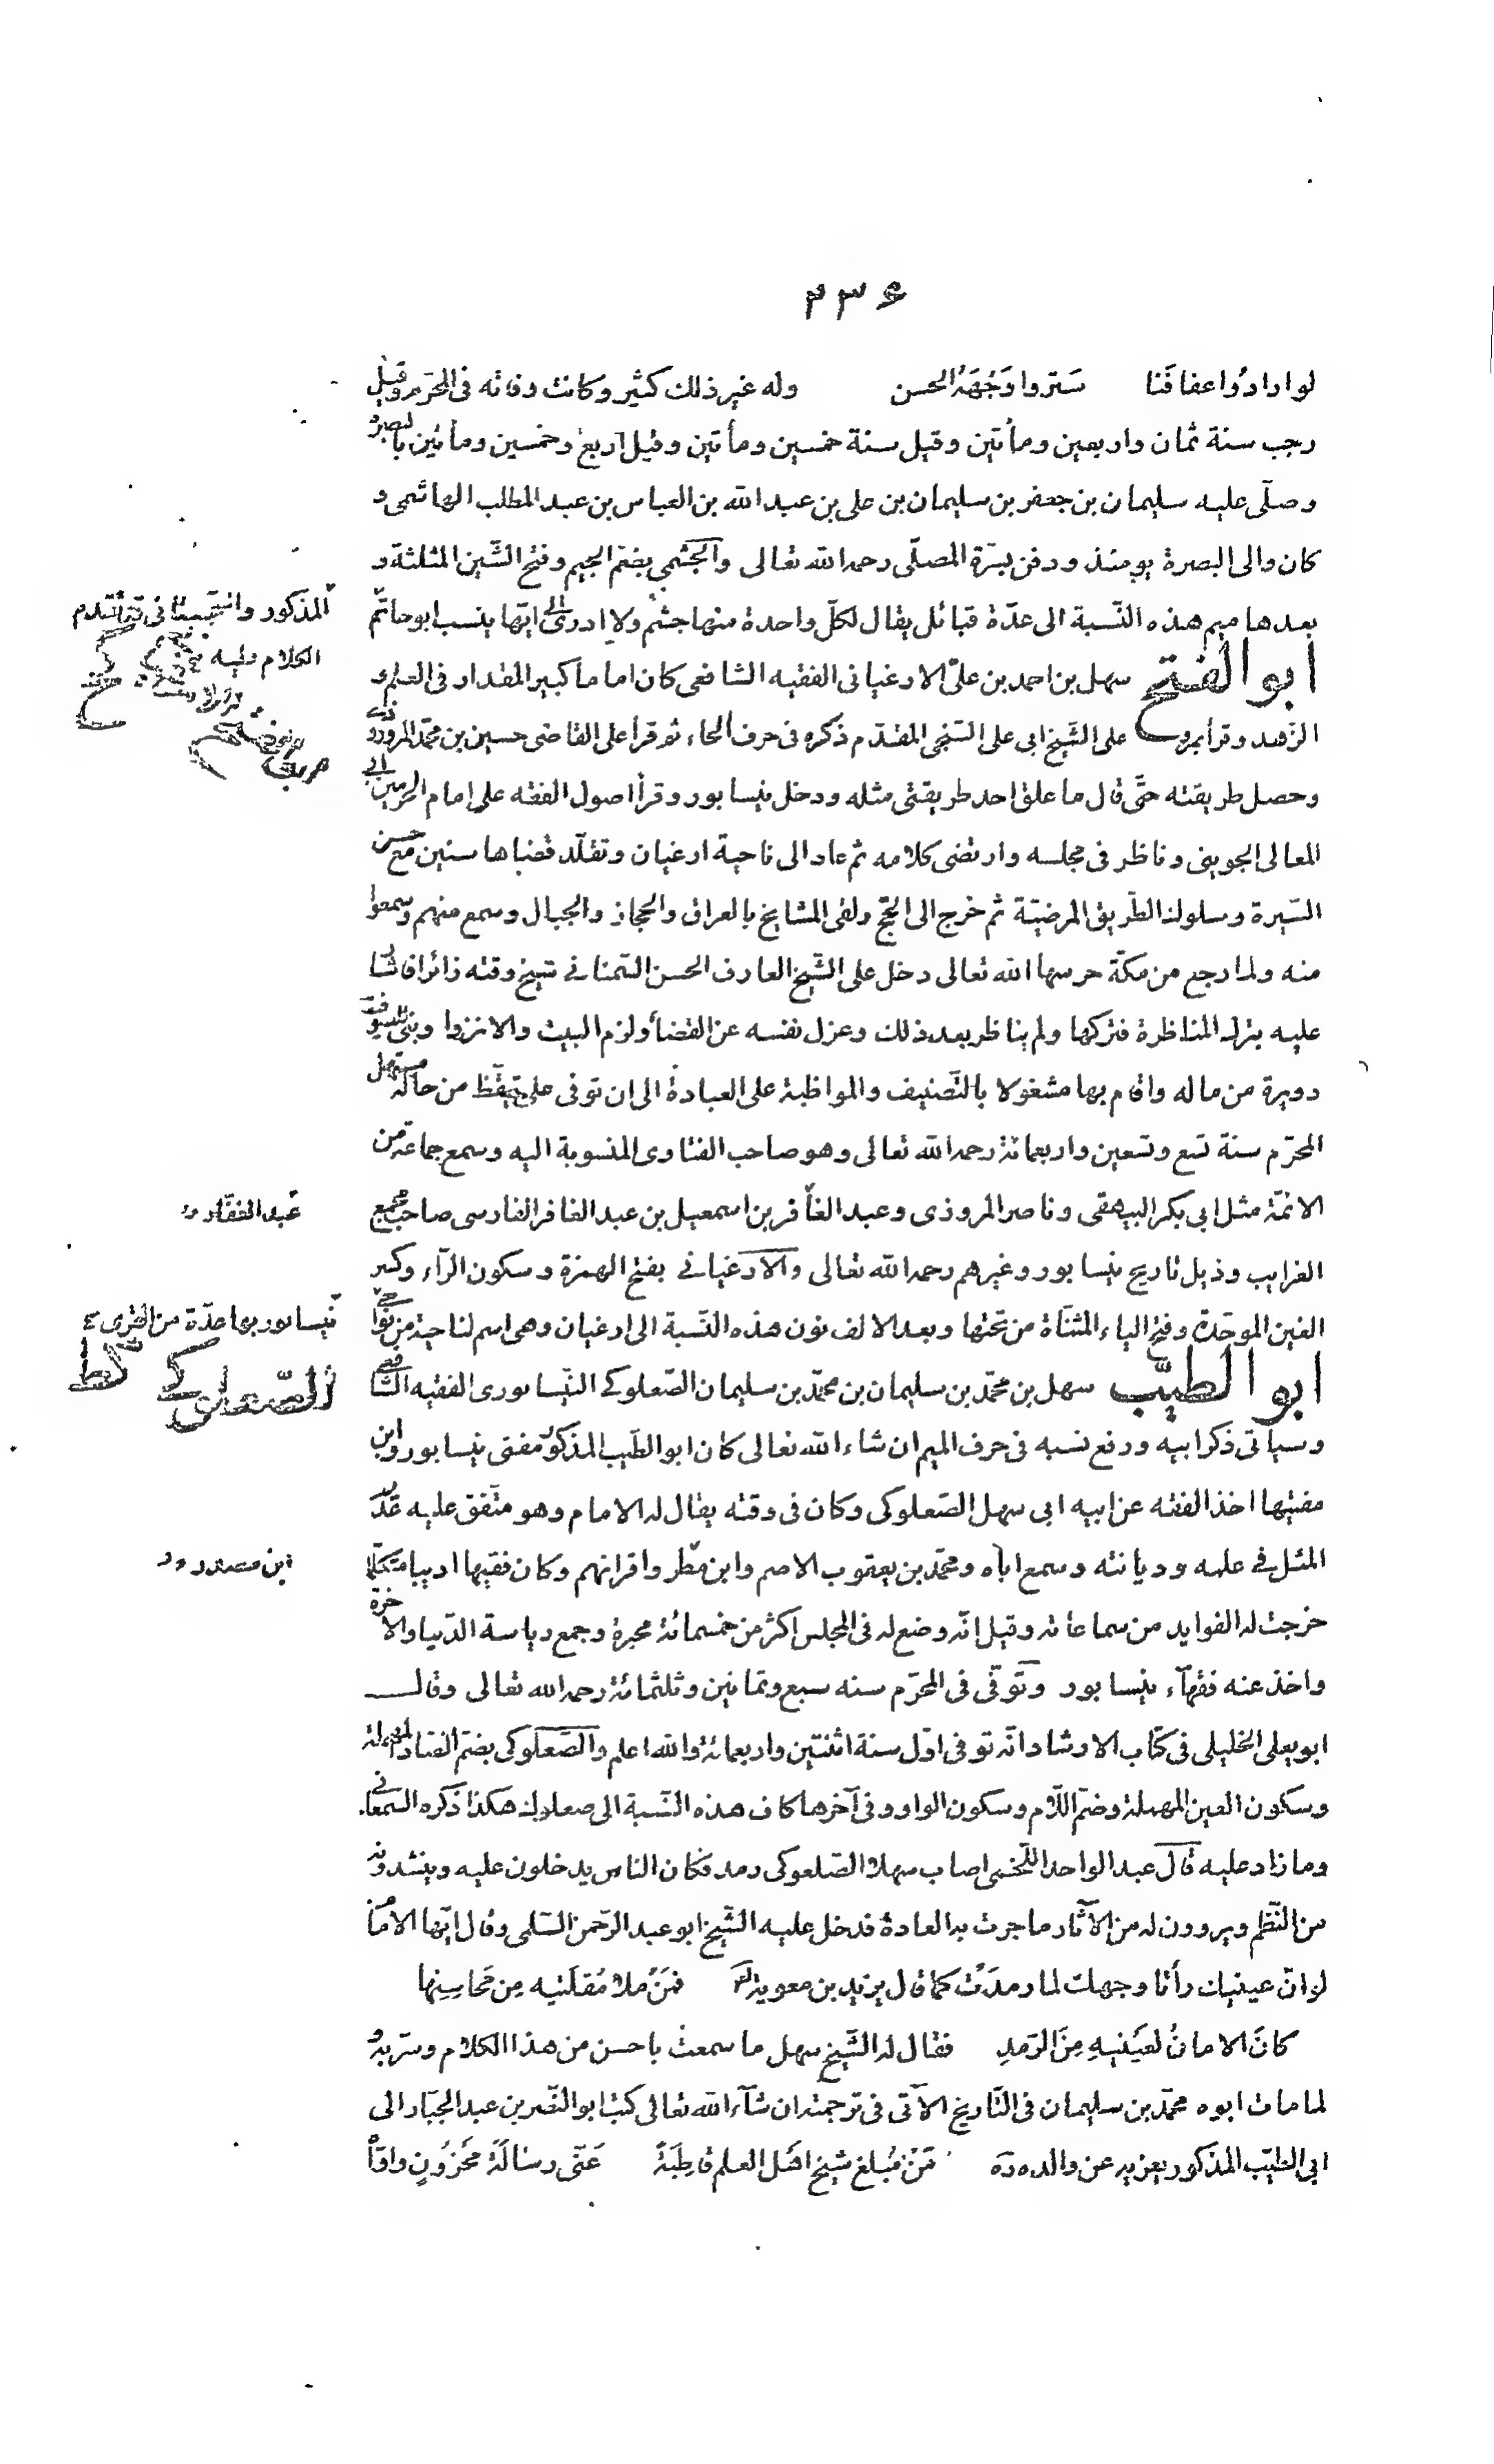 ٢٣٤
لو ارادوا عفافنا ستروا وجهه الحسن وله غير ذلك كثير وكانت وفاته فى المحرم وقيل
رجب سنة ثمان واربعين ومأتين وقيل سنة خمسين ومأتين وقيل اربع وخمسين ومأتين بالبصرة
وصلّى عليه سليمان بن جعفر بن سليمان بن على بن عبد الله بن العباس بن عبد المطلب الهاشمى و
كان والى البصرة يومئذ ودفن بسرّة المصلّى رحمه الله تعالى والجشمي بضمّ الجيم وفتح الشّين المثلثة و
بعدها ميم هذه النّسبة الى عدّة قبائل يقال لكلّ واحدة منها جشم ولا ادرى الى ايّها ينسب ابو حاتم
المذكور
الكلام
ابو الفتح سهل بن احمد بن علىّ الارغيانى الفقيه الشافعى كان اماما كبير المقدار فى العلم و
الزّهد وقرأ بمرو على الشّيخ ابى على السّنجى المقدّم ذكره فى حرف الحاء ثم قرأ على القاضى حسين بن محمّد المروروذى
وحصل طريقته حتّى قال ما علق احد طريقتى مثله ودخل نيسابور وقرأ اصول الفقه على امام الحرمين ابى
المعالى الجوينى وناظر فى مجلسه وارتضى كلامه ثم عاد الى ناحية ارغيان وتقلّد قضاها سنين مع حسن
السّيرة وسلوك الطّريق المرضيّة ثم خرج الى الحجّ ولقى المشايخ بالعراق والحجاز والجبال وسمع منهم وسمعوا
منه ولما رجع من مكّة حرسها الله تعالى دخل على الشّيخ العارف الحسن السّمنانى شيخ وقته زائرا فاشا
عليه بترك المناظرة فتركها ولم يناظر بعد ذلك وعزل نفسه عن القضأ ولزم البيت والانزوا وبنى للصّوفيّة
دويرة من ماله واقام بها مشغولا بالتّصنيف والمواظبة على العبادة الى ان توفى على تيقّظ من حاله مستهل
المحرّم سنة تسع وتسعين واربعمائة رحمه الله تعالى وهو صاحب الفتاوى المنسوبة اليه وسمع جماعة من
الائمّة مثل ابى بكر البيهقى وناصر المروذى وعبد الغافر بن اسمعيل بن عبد الغافر الفارسى صاحب مجمع
الغرايب وذيل تاريخ نيسابور وغيرهم رحمه الله تعالى والارغيانى بفتح الهمزة وسكون الرّاء وكسر
الغين الموحّدة وفتح الياء المثنّاة من تحتها وبعد الالف نون هذه النّسبة الى ارغيان وهى اسم لناحية من نواحى
نيسابور بها عدّة من القرى
الصّعلوكى
ابو الطيّب سهل بن محمّد بن سليمان بن محمّد بن سليمان الصّعلوكى النّيسابورى الفقيه الشّافعى
وسياتى ذكر ابيه ورفع نسبه فى حرف الميم ان شاء الله تعالى كان ابو الطّيب المذكور مفتى نيسابور وابن
مفتيها اخذ الفقه عن ابيه ابى سهل الصّعلوكى وكان فى وقته يقال له الامام وهو متّفق عليه عديم
المثل فى علمه وديانته وسمع اباه ومحمّد بن يعقوب الاصم وابن مطر واقرانهم وكان فقيها اديبا متكلّما
خرجت له الفوايد من سماعاته وقيل انّه وضع له فى المجلس اكثر من خمسمائة محبرة وجمع رياسة الدّنيا والاخرة
واخذ عنه فقهآء نيسابور وتوفّى فى المحرّم سنه سبع وثمانين وثلثمائة رحمه الله تعالى وقال
ابو يعلى الخليلى فى كتاب الارشاد انّه توفى اوّل سنة اثنتين واربعمائة والله اعلم والصّعلوكى بضمّ الصّاد المهملة
وسكون العين المهملة وضمّ اللّام وسكون الواو وفى آخرها كاف هذه النّسبة الى صعلوك هكذا ذكره السّمعانى
وما زاد عليه قال عبد الواحد اللّخمى اصاب سهلا الصّلعوكى رمد فكان الناس يدخلون عليه وينشدونه
من النّظم ويروون له من الآثار ما جرت به العادة فدخل عليه الشّيخ ابو عبد الرّحمن السّلمى وقال ايّها الامام
لو انّ عينيك رأتا وجهك لما رمدت كما قال يزيد بن معوية فمن ملا مقلتيه من محاسنها
كان الامان لعينيه من الرّمد فقال له الشّيخ سهل ما سمعت باحسن من هذا الكلام وسرّ به و
لما مات ابوه محمّد بن سليمان فى التّاريخ الآتى فى ترجمته ان شآء الله تعالى كتب ابو النّضر بن عبد الجبّار الى
ابى الطيّب المذكور يعزيه عن والده من مبلغ شيخ اهل العلم قاطبة عنّى رسالة محزون واوّاه